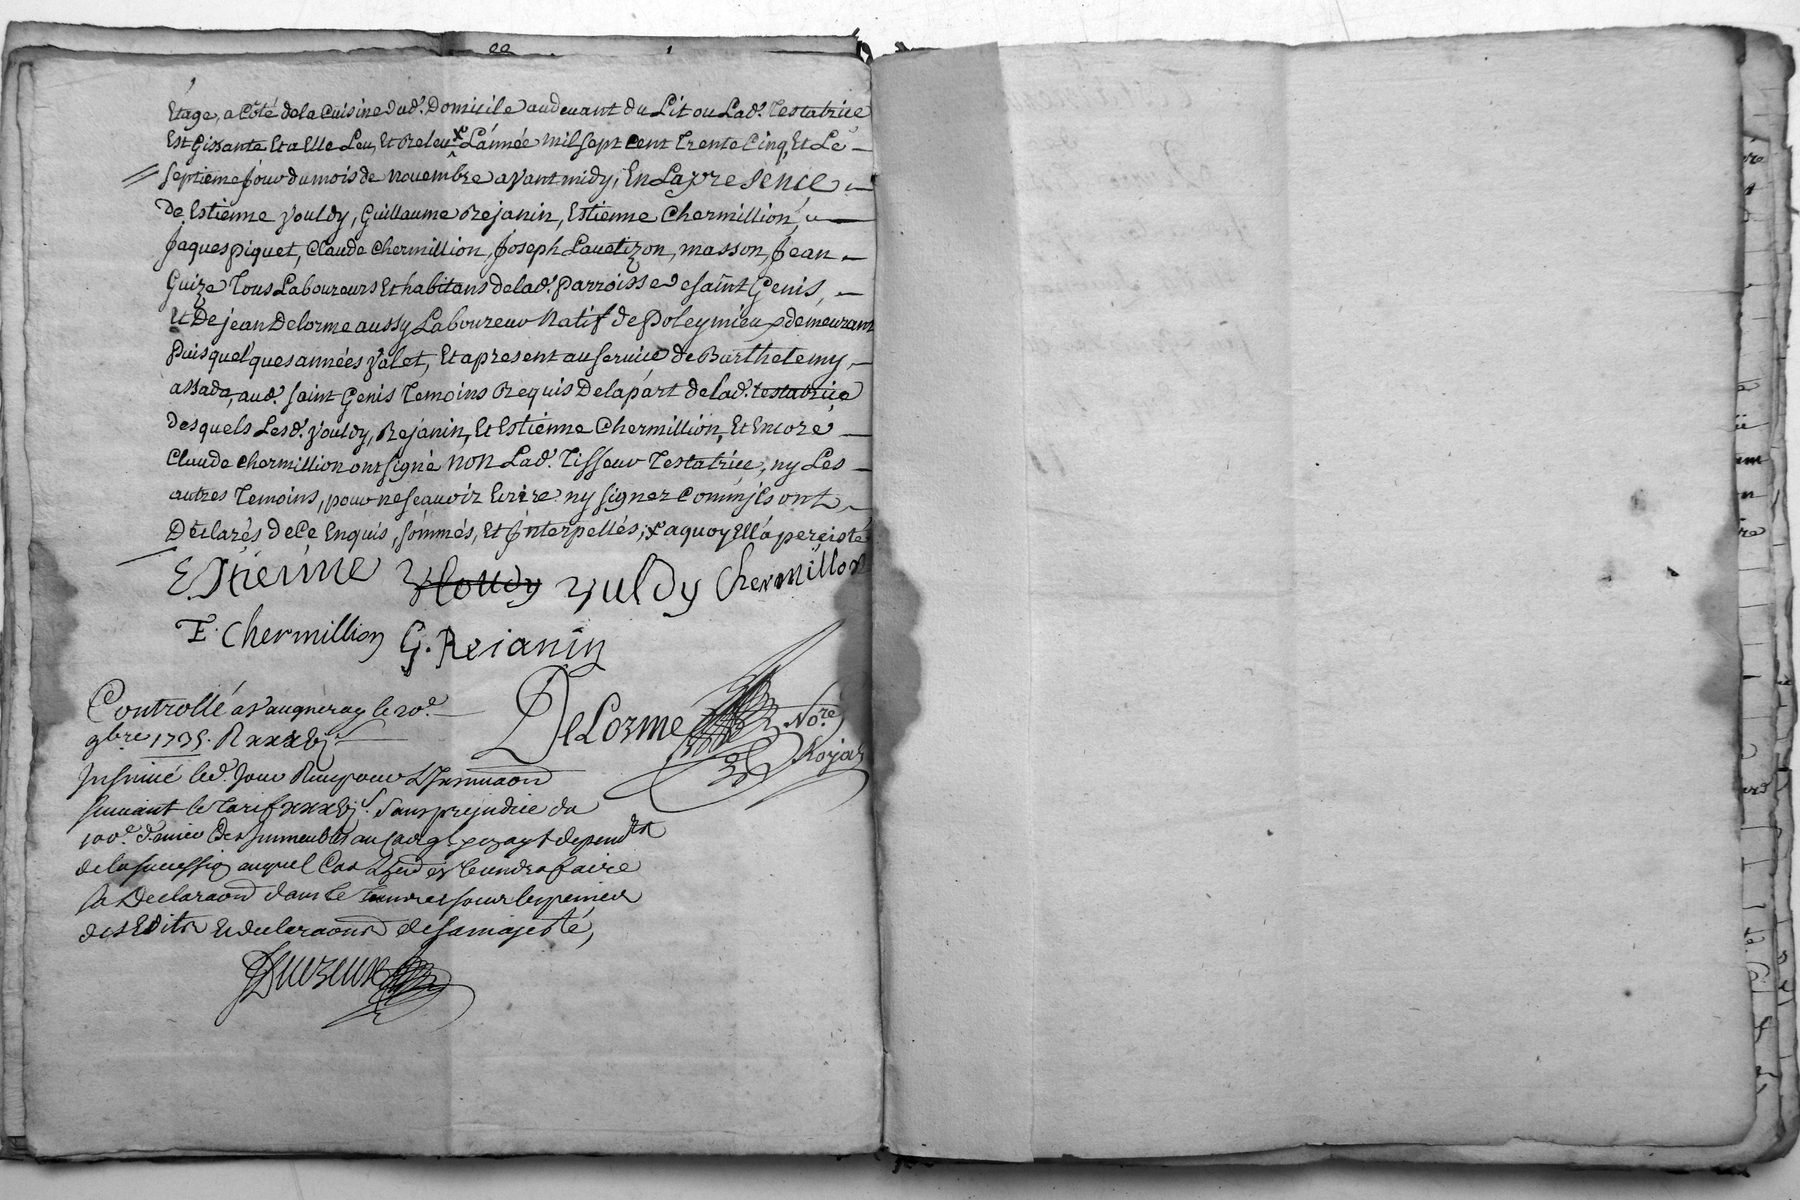 Étage, a Côté de la Cuisine dud. Domicile au devant du Lit ou Lad. Testatrice
Est Gissante Et a Elle Leu, Et Releu x L'année mil sept cent Trente Cinq, Et Le
septieme jour du mois de novembre avant midy, En La presence
de Estienne youldy, Guillaume Rejanin, Estienne Chermillion,
Jaques piquet, Claude Chermillion, Joseph Lauetizon, masson, Jean
Guize Tous Laboureurs Et habitans de lad. parroisse de saint Genis,
Et De jean Delorme aussy Laboureur Natif de Poleymieu demeurant
Puis quelques années valet, Et a present au service de Barthelemy
assada, aud. saint Genis Temoins Requis De la part de lad. testatrice
desquels Lesd. youldy, Rejanin, Et Estienne Chermillion, Et Encore
Claude Chermillion ont signé non Lad. Tisseur Testatrice, ny Les
autres Temoins, pour ne scauoir Ecrire ny signer Comm'ils ont
Déclarés de Ce Enquis, sommés, Et Interpellés; x a quoy Ell'a persisté
Estienne youldy yuldy Chermillon
E. Chermillion G. Rejanin
DeLorme No.re
Royal
Controllé a Vaugneray le 20e
9bre 1735. R xxxvj s
Insinué led. Jour Receu pour L'Insinuaon
suiuant le Tarif xxxvj s. sans prejudice du
100e denier des Immeubles depend.ts
de la succession auquel Cas faire
sa Declaraon dans le
des Edits Et declaraons de sa majesté,